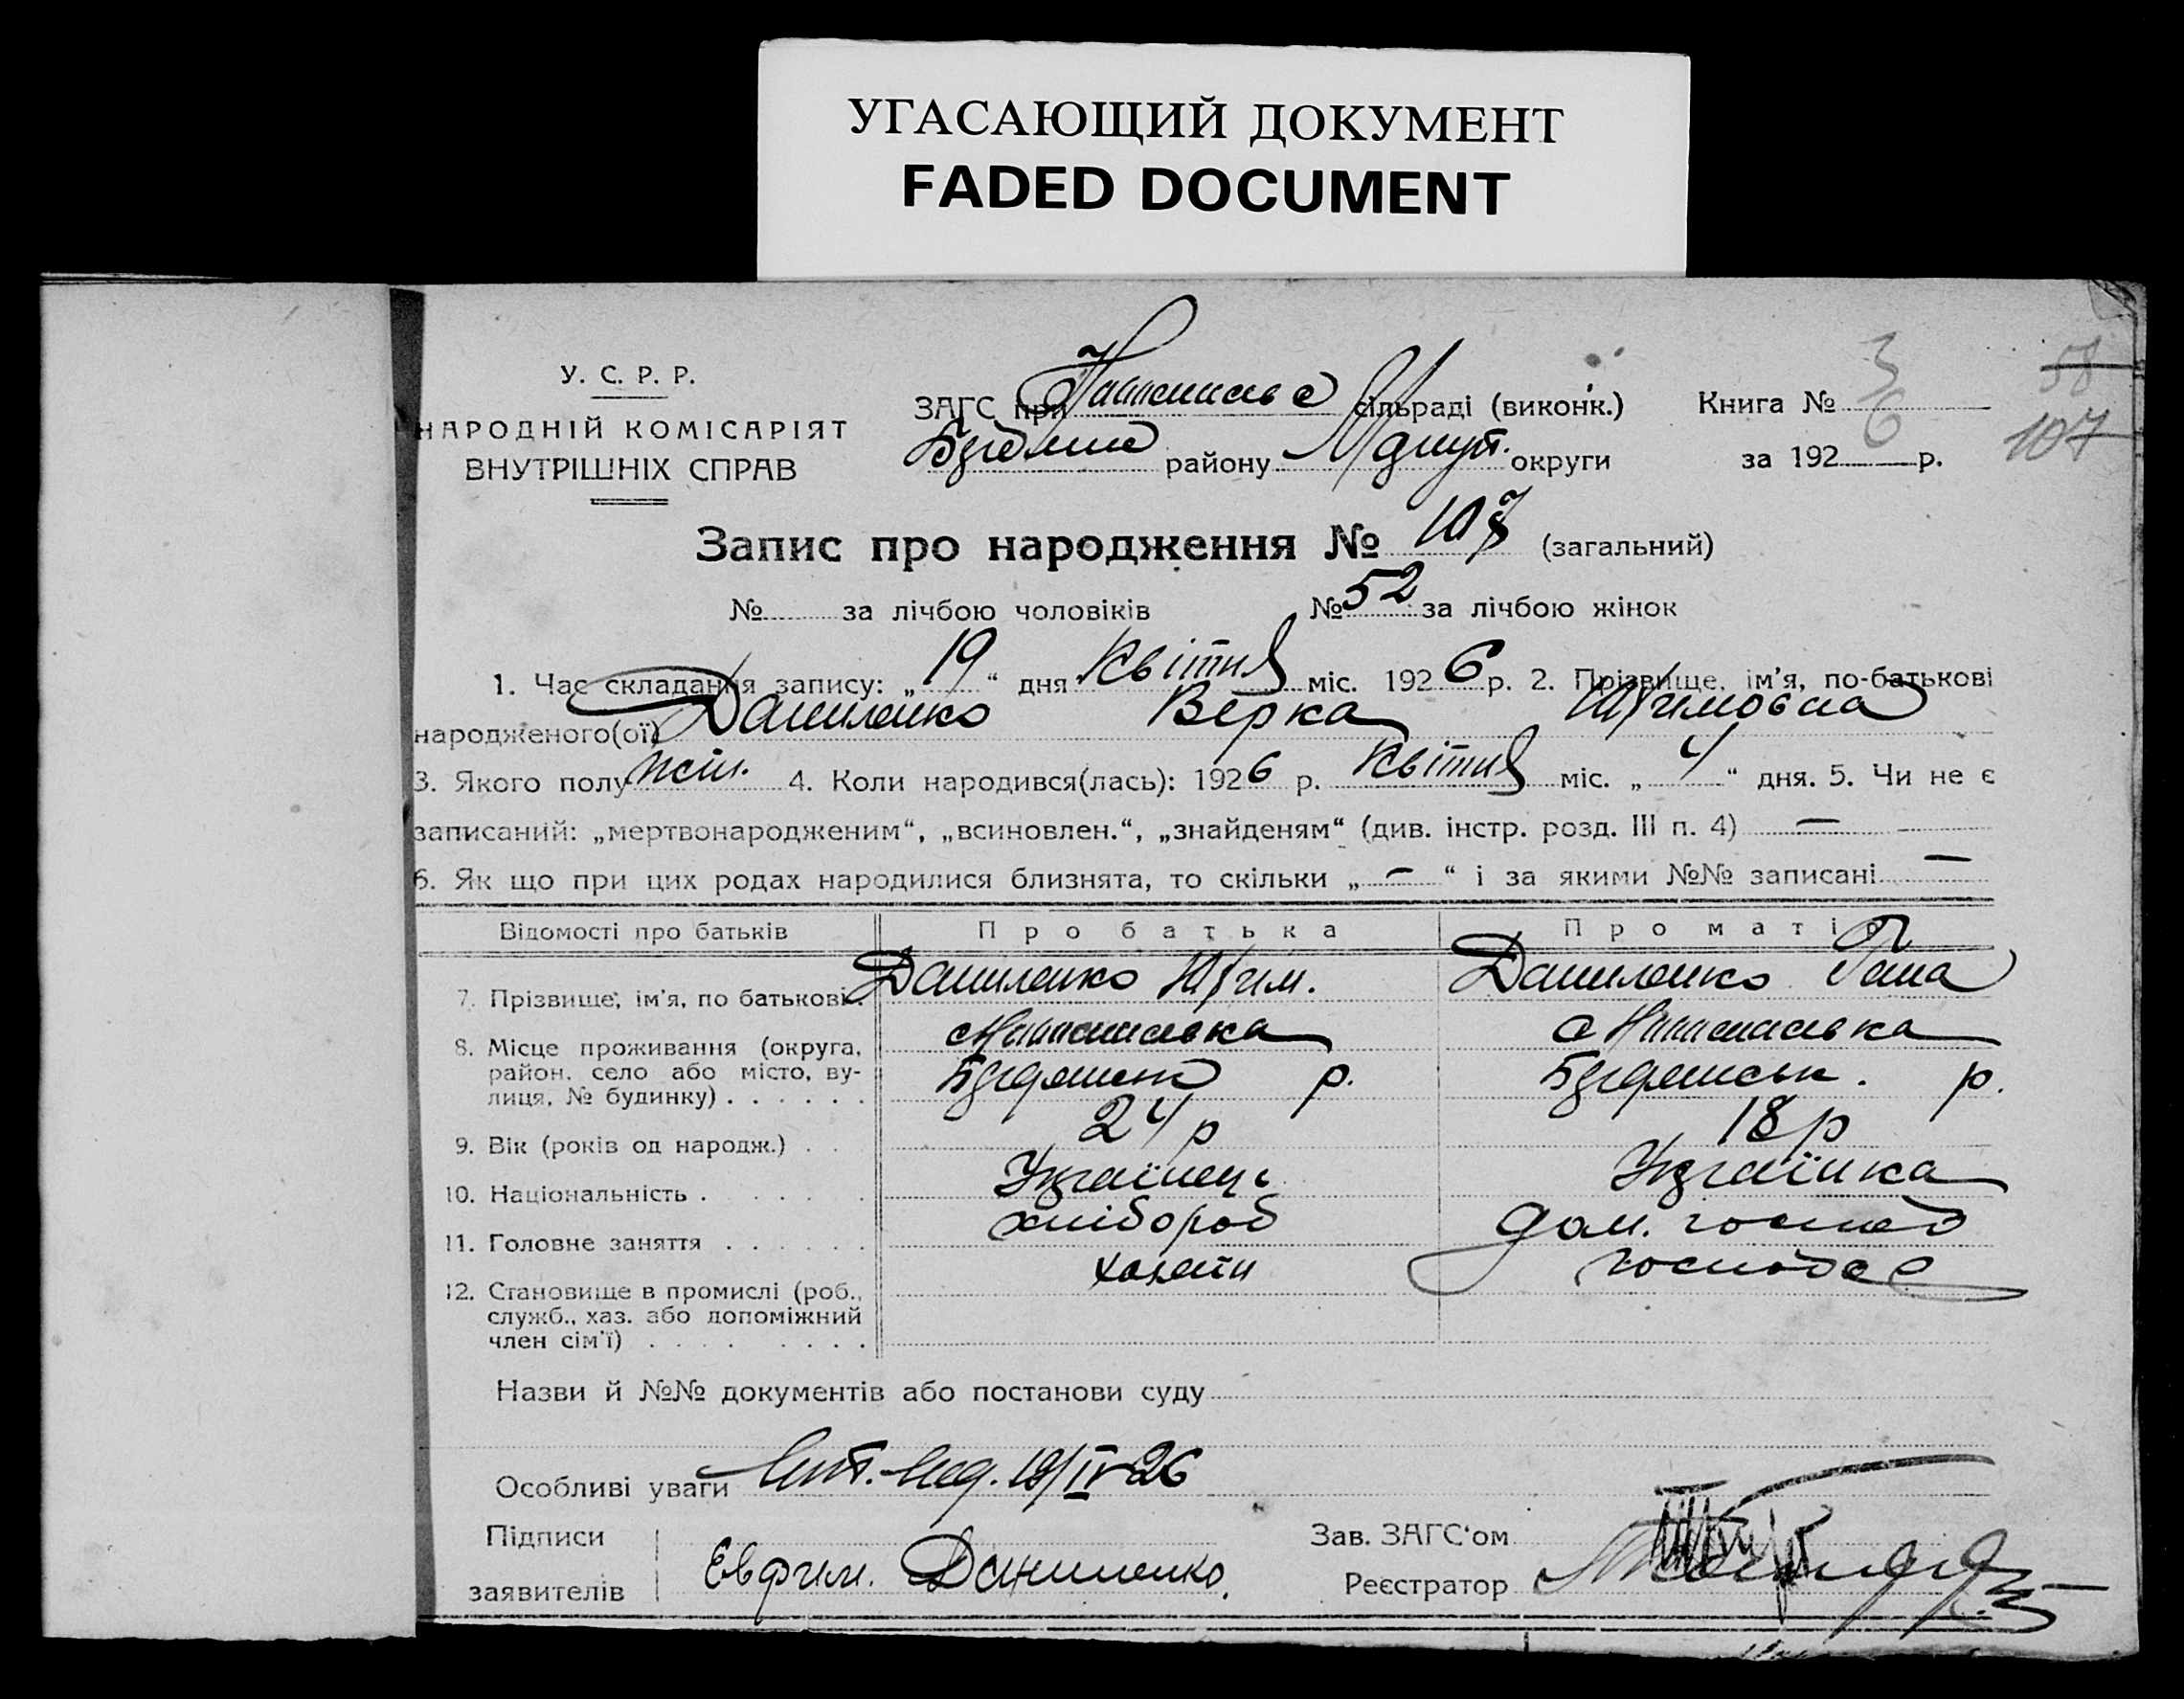 УГАСАЮЩИЙ ДОКУМЕНТ
FADED DOCUMENT
У. С. Р. Р.
НАРОДНІЙ КОМІСАРІЯТ
ВНУТРІШНІХ СПРАВ
ЗАГС при сільраді (виконк.)
району округи
Книга № 3
за 1926 р.
58
107
Запис про народження № 107 (загальний)
№ за лічбою чоловіків № 52 за лічбою жінок
1. Час складання запису: „19“ дня Квітня міс. 1926 р. 2. Прізвище, ім'я, по-батькові
народженого(ої) Даниленко Вєрка Юхимовна
3. Якого полу жін. 4. Коли народився(лась): 1926 р. Квітня міс. „4“ дня. 5. Чи не є
записаний: „мертвонародженим“, „всиновлен.“, „знайденям“ (див. інстр. розд. III п. 4) —
6. Як що при цих родах народилися близнята, то скільки „—“ і за якими №№ записані —
Відомості про батьків Про батька Про матір
7. Прізвище, ім'я, по батькові. Даниленко Юхим. Даниленко
8. Місце проживання (округа,
район, село або місто, ву-
лиця, № будинку) . . . . . . р. р.
9. Вік (років од народж.) . . 24 р 18 р
10. Національність . . . . . . Українець Українка
11. Головне заняття . . . . . . хлібороб дом. господ
12. Становище в промислі (роб.,
служб., хаз. або допоміжний
член сім'ї) . . . . . . . . хазяїн
Назви й №№ документів або постанови суду
Особливі уваги 19/IV 26
Підписи
заявителів Евфим. Даниленко.
Зав. ЗАГС'ом
Реєстратор